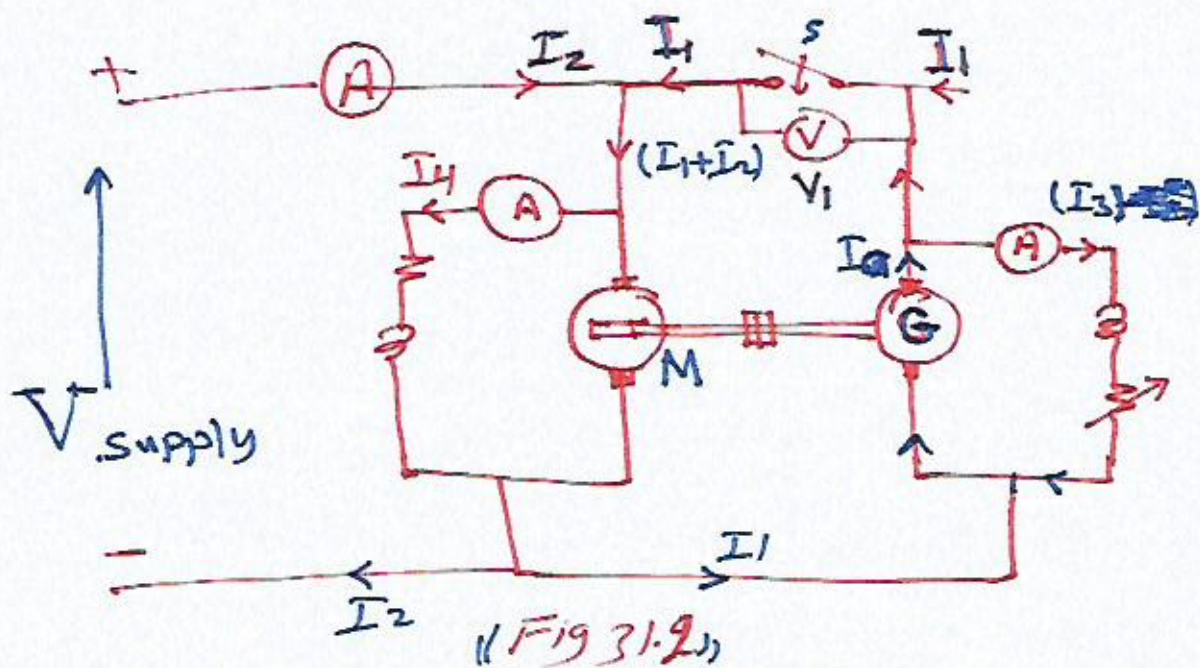 I2 I1 S I1
+ A
V
V1
(I1+I2)
I4 A
(I3)
A
Ia
G
M
V supply
I1
-
I2
"(Fig 31.2)"